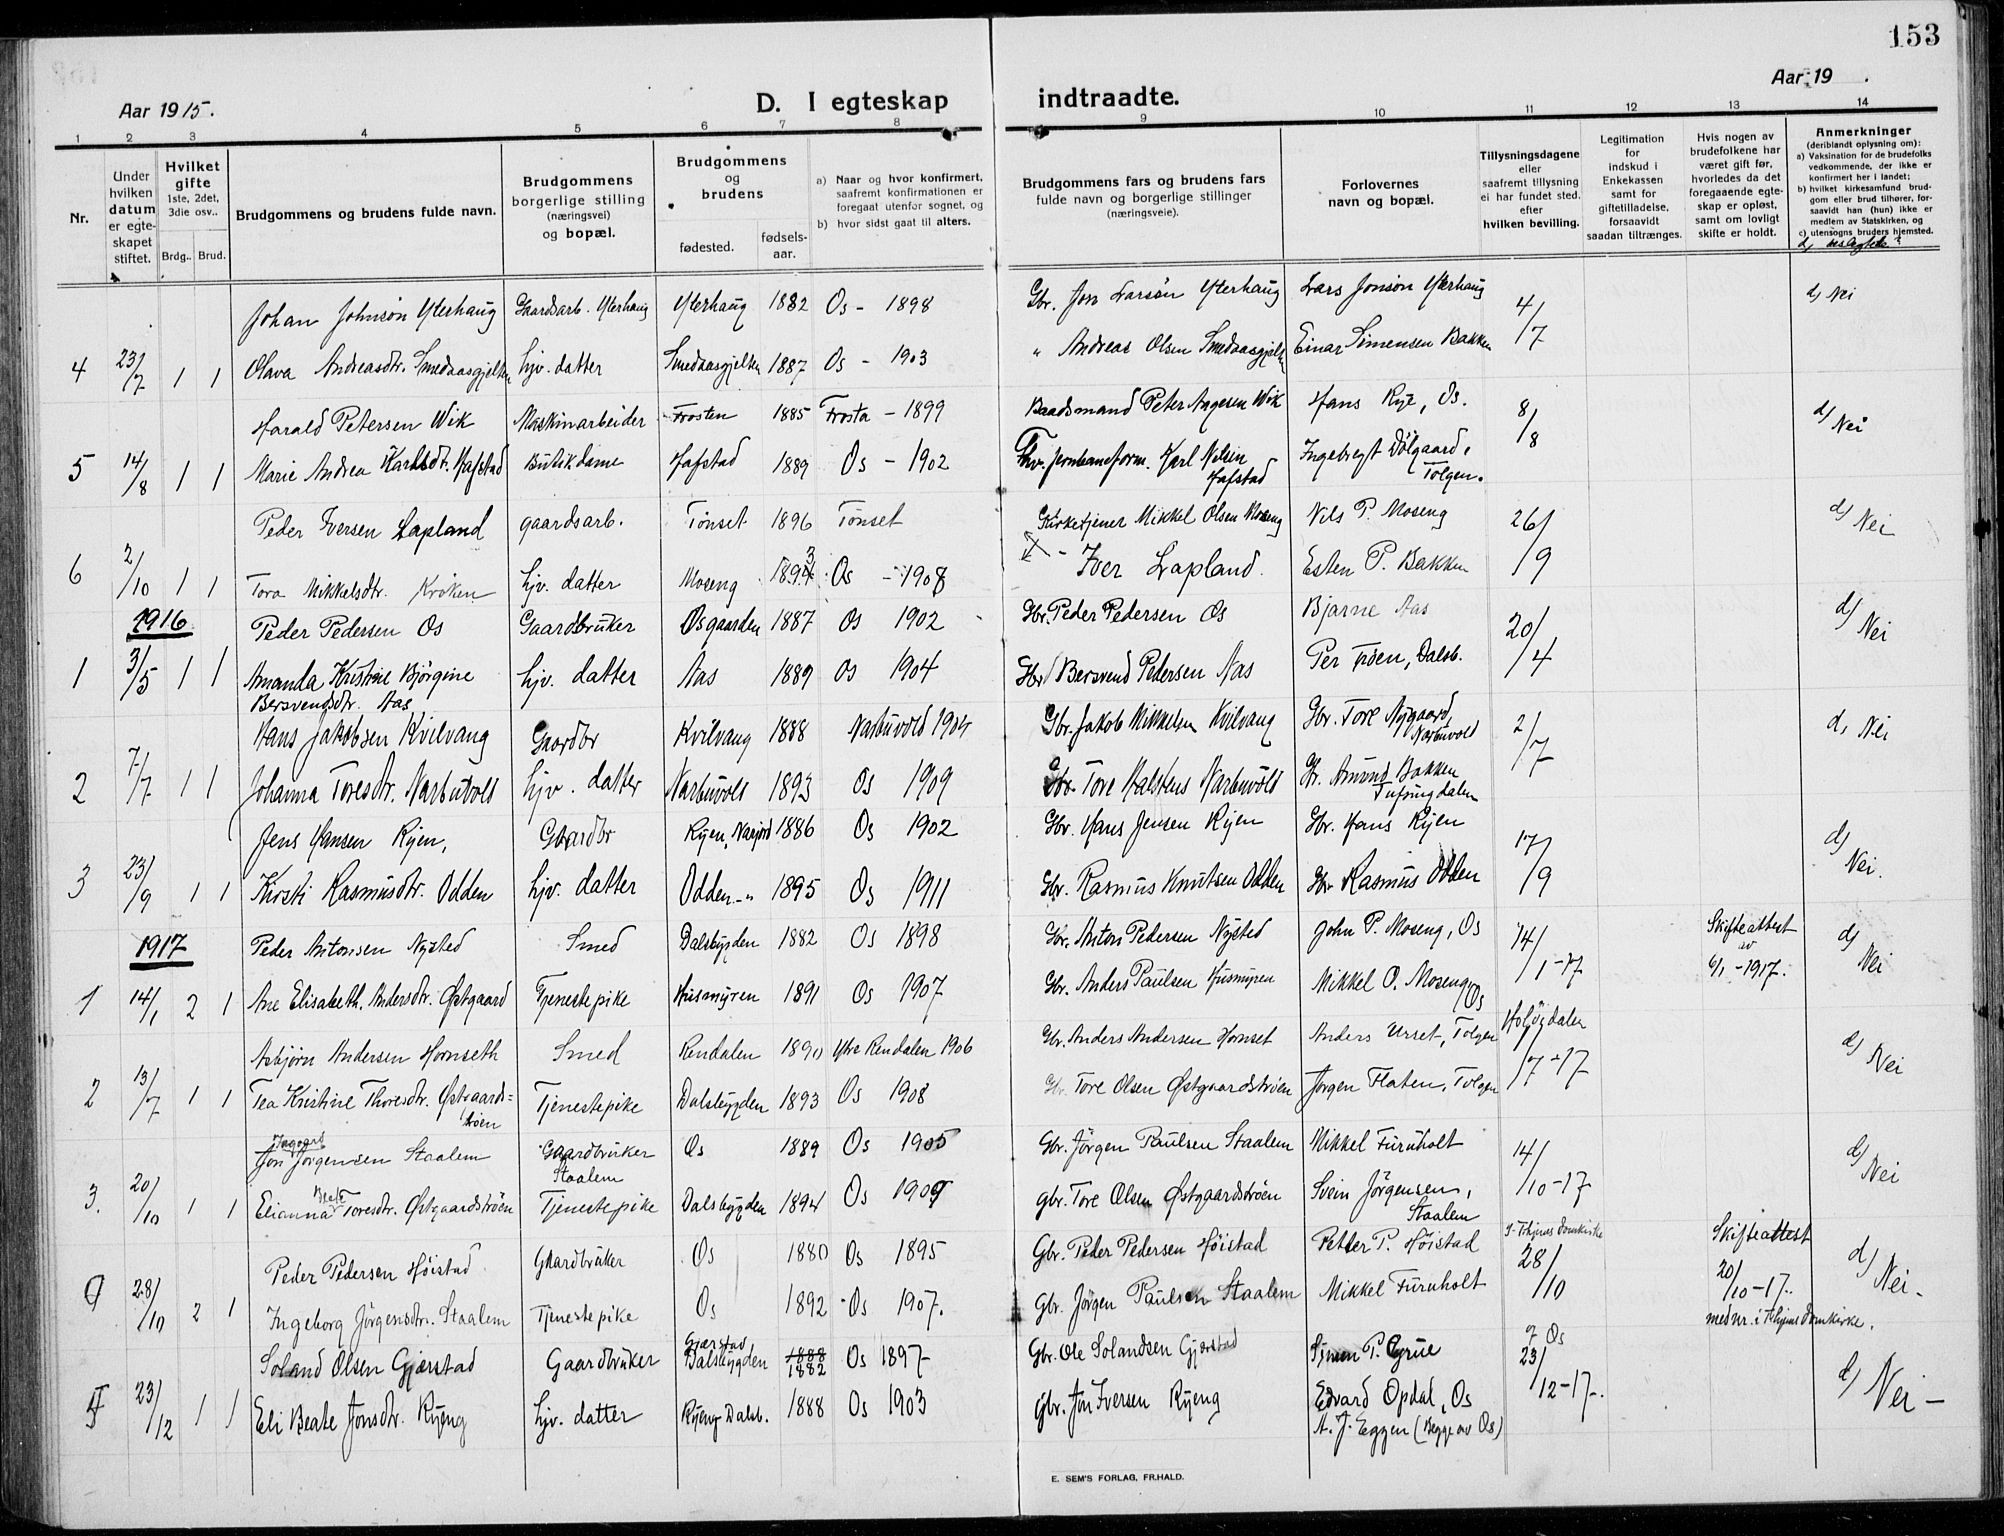 153
Aar 1915.
D. I egteskap indtraadte.
Aar 19 .
1 2 3 4 5 6 7 8 9 10 11 12 13 14
Nr.
Under hvilken datum er egteskapet stiftet.
Hvilket gifte 1ste, 2det, 3die osv..
Brdg.. Brud.
Brudgommens og brudens fulde navn.
Brudgommens borgerlige stilling (næringsvei) og bopæl.
Brudgommens og brudens
fødested.
fødselsaar.
a) Naar og hvor konfirmert, saafremt konfirmationen er foregaat utenfor sognet, og
b) hvor sidst gaat til alters.
Brudgommens fars og brudens fars fulde navn og borgerlige stillinger (næringsveie).
Forlovernes navn og bopæl.
Tillysningsdagene eller saafremt tillysning ei har fundet sted. efter hvilken bevilling.
Legitimation for indskud i Enkekassen samt for giftetilladelse, forsaavidt saadan tiltrænges.
Hvis nogen av brudefolkene har været gift før, hvorledes da det foregaaende egteskap er opløst, samt om lovligt skifte er holdt.
Anmerkninger (deriblandt oplysning om): a) Vaksination for de brudefolks vedkommende, der ikke er konfirmert her i landet; b) hvilket kirkesamfund brudgom eller brud tilhører, forsaavidt han (hun) ikke er medlem av Statskirken, og c) utensogns bruders hjemsted.
d) beslegtede?
Johan Johnson Yterhaug Gaardsarb. Yterhaug Yterhaug 1882 Os - 1898 Gbr. Jon Larsøn Yterhaug Lars Jonson Yterhaug 4/7 d) Nei
4 23/7 1 1 Olava Andreasdtr. Smedaasgjelten hjv. datter Smedaasgjelten 1887 Os - 1903 " Andreas Olsen Smedaasgjelten Einar Simensen Bakken
Harald Petersen Wik Maskinarbeider Frosten 1885 Frosta - 1899 Baadsmand Peter Angesen Wik Hans Rye, Os. 8/8 d) Nei
5 14/8 1 1 Marie Andrea Karlsdtr. Hafstad Butikdame Hafstad 1889 Os - 1902 Fhv. jernbaneform. Karl Nilsen Hafstad Ingebregt Dølgaard, Tolgen.
Peder Iversen Lapland gaardsarb. Tønset 1896 Tønset Kirketjener Mikkel Olsen Moseng Nils P. Moseng 26/9 d) Nei
6 2/10 1 1 Tora Mikkelsdtr. Kroken hjv. datter Moseng 1893 Os - 1908 - Iver Lapland. Esten P. Bakken
1916
Peder Pedersen Os Gaardbruker Osgaarden 1887 Os 1902 Gbr. Peder Pedersen Os Bjarne Aas 20/4 d) Nei
1 3/5 1 1 Amanda Kristine Bjørgine Bersvendsdtr. Aas hjv. datter Aas 1889 Os 1904 Gbr. Bersvend Pedersen Aas Per Trøen, Dalsb.
Hans Jakobsen Kvilvang Gaardbr Kvilvang 1888 Narbuvold 1904 Gbr. Jakob Mikkelsen Kvilvang Gbr. Tore Nygaard, Narbuvold 2/7 d) Nei
2 7/7 1 1 Johanna Toresdtr. Narbuvold hjv. datter Narbuvold 1893 Os 1909 Gbr. Tore Halstens Narbuvold Gbr. Amund Bakken Tufsingdalen
Jens Hansen Ryen, Gaardbr Ryen, Narjord 1886 Os 1902 Gbr. Hans Jensen Ryen Gbr. Hans Ryen 17/9 d) Nei.
3 23/9 1 1 Kirsti Rasmusdtr. Odden hjv. datter Odden -"- 1895 Os 1911 Gbr. Rasmus Knutsen Odden Gbr Rasmus Odden
1917
Peder Antonsen Nysted Smed Dalsbygden 1882 Os 1898 Gbr. Anton Pedersen Nysted John P. Moseng, Os 14/1-17 Skifteattest av 6/1-1917. d) Nei
1 14/1 2 1 Ane Elisabeth. Andersdtr. Østgaard Tjenestepike Husmyren 1891 Os 1907 Gbr. Anders Paulsen Husmyren Mikkel O. Moseng, Os
Asbjørn Andersen Hornseth Smed Rendalen 1890 Ytre Rendalen 1906 Gbr. Anders Andersen Hornset Anders Urset, Tolgen Holøydalen 1/7-17 d) Nei
2 13/7 1 1 Tea Kristine Thoresdtr. Østgaardstrøen Tjenestepike Dalsbygden 1893 Os 1908 Gbr. Tore Olsen Østgaardstrøen Jørgen Flaten, Tolgen
Ingvart
Jon Jørgensen Staalem Gaardbruker Staalem Os 1889 Os 1905 Gbr. Jørgen Paulsen Staalem Mikkel Furuholt 14/10-17 d) Nei
3. 20/10 1 1 Elianna Beate Toresdtr. Østgaardstrøen Tjenestepike Dalsbygden 1894 Os 1909 gbr. Tore Olsen Østgaardstrøen Svein Jørgensen, Staalem
Peder Pedersen Høistad Gaardbruker Os 1880 Os 1895 Gbr. Peder Pedersen Høistad Petter P. Høistad I Trhjems Domkirke 28/10 Skifteattest 20/10-17. d) Nei.
28/10 2 1 Ingeborg Jørgensdtr. Staalem Tjenestepike Os 1892 Os 1907. Gbr. Jørgen Paulsen Staalem Mikkel Furuholt med nr. i Thjems Domkirke.
Soland Olsen Gjærstad Gaardbruker Gjærstad Dalsbygden 1888 1882 Os 1897 Gbr. Ole Solandsen Gjærstad Simen P. Grue 9 Os 23/12-17. d) Nei -
4 23/12 1 1 Eli Beate Jonsdtr. Ryeng hjv. datter Ryeng Dalsb. 1888 Os 1903 gbr. Jon Iversen Ryeng Edvard Opdal, Os
A. J. Eggen (Begge av Os)
E. SEM'S FORLAG, FR.HALD.